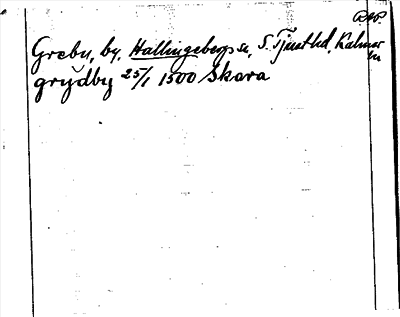 R.S.P.
Greby, by, Hallingebergs sn, S. Tjust hd, Kalmar
ln
grydby 25/1 1500 Skara